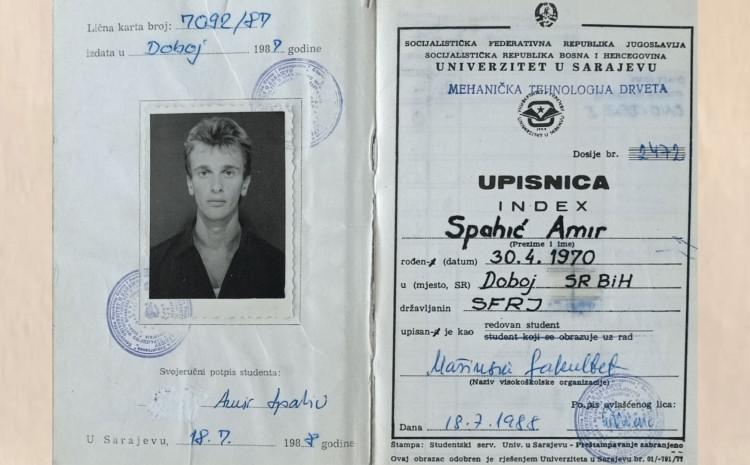 Lična karta broj: 7092/87
izdata u Doboj 1987 godine
Svojeručni potpis studenta:
Amir Spahić
U Sarajevu, 18.7. 1988 godine
SOCIJALISTIČKA FEDERATIVNA REPUBLIKA JUGOSLAVIJA
SOCIJALISTIČKA REPUBLIKA BOSNA I HERCEGOVINA
UNIVERZITET U SARAJEVU
MEHANIČKA TEHNOLOGIJA DRVETA
Dosije br. 2472
UPISNICA
INDEX
Spahić Amir
(Prezime i ime)
rođen-a (datum) 30.4.1970
u (mjesto, SR) Doboj SR BiH
državljanin SFRJ
upisan-a je kao redovan student
student koji se obrazuje uz rad
Mašinski fakultet
(Naziv visokoškolske organizacije)
Potpis ovlašćenog lica:
Dana 18.7.1988
Stampa: Studentski serv. Univ. u Sarajevu - Preštampavanje zabranjeno
Ovaj obrazac odobren je rješenjem Univerziteta u Sarajevu br. 01/-791/77